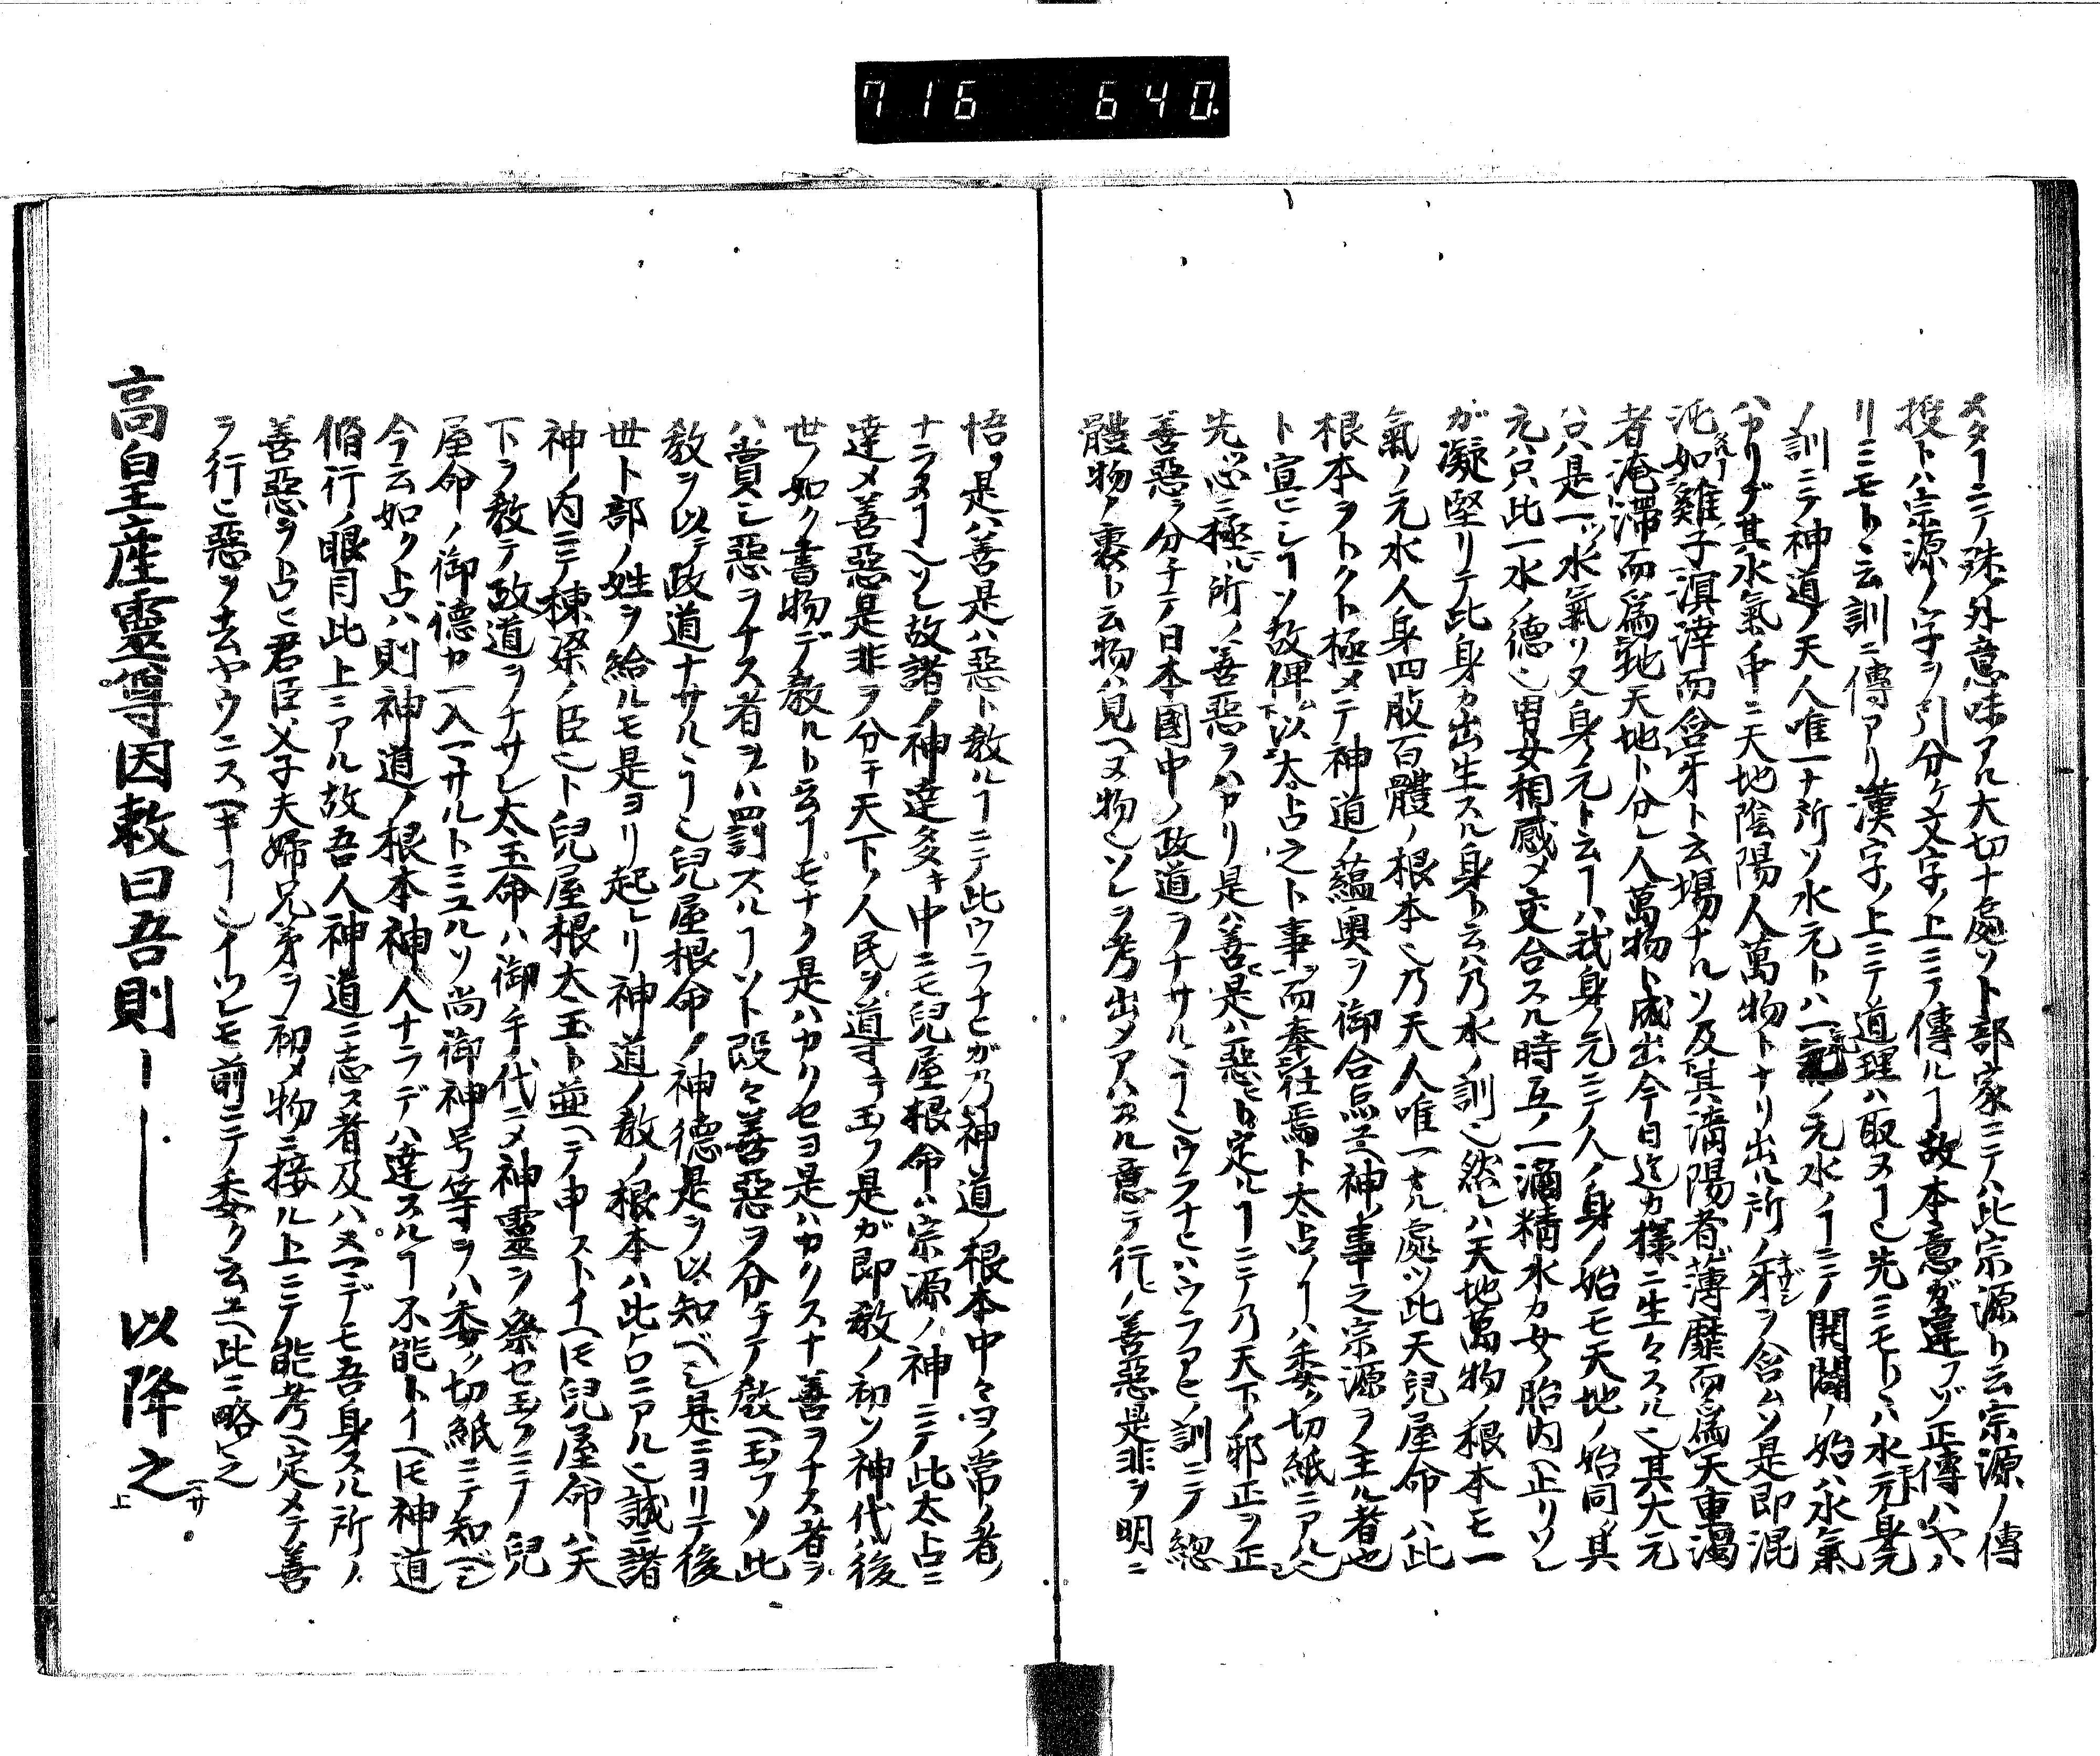 716 640.
ヌターニテ殊ノ外意味アル大切ナ處ソト部家ニテハ此宗源ト云宗源ノ傳
授トハ宗源ノ字ヲ引分ケ文字ノ上ニテ傳ルヿ故本意ガ違フゾ正傳ハヤハ
リミモトヽ云訓ニ傳アリ漢字ノ上ニテ道理ハ取ヌヿ也先ミモトヽハ水元身元
ノ訓ニテ神道ノ天人唯一ナ所ソ水元トハ一氣ノ元水ノヿニテ開闢ノ始ハ水氣
ハカリデ其水氣ノ中ニ天地陰陽人萬物トナリ出ル所ノ牙ヲ含ムソ是即混
沌如雞子溟涬而含牙ト云場ナルソ及其清陽者薄靡而爲天重濁
者淹滯而爲地天地ト分レ人萬物ト成出今日迄カ様ニ生々スル也其大元
ハ只是一ツ水氣ソ又身ノ元ト云ヿハ我身ノ元ニテ人ノ身ノ始モ天地ノ始同ク其
元ハ只此一水ノ德也男女相感メ交合スル時互ノ一滴精水カ女ノ胎内ヘ止リソレ
ガ凝堅リテ此身カ出生スル身ト云ハ乃水ノ訓也然レハ天地萬物ノ根本モ一
氣ノ元水人身四肢百體ノ根本也乃天人唯一ナル處ソ此天兒屋命ハ此
根本ヲトクト極メテ神道ノ蘊奥ヲ御合点ユヘ神事之宗源ヲ主ル者也
ト宣ヒシヿソ故俾以太占之卜事而奉仕焉ト太占ノヿハ委ク切紙ニアルヿ也
先心ニ極ル所ノ善惡ヲハカリ是ハ善是ハ惡ヒト定ルヿニテ乃天下ノ邪正ヲ正
善惡ヲ分チテ日本國中ノ政道ヲナサルヽヿ也ウラナヒハウラアヒノ訓ニテ總
體物ノ裏ト云物ハ見ヘヌ物也ソレヲ考出メアハスル意テ行ヒノ善惡是非ヲ明ニ
悟ヲ是ハ善是ハ惡ト教ルヿニテ此ウラナヒガ乃神道ノ根本中々ヨノ常ノ者ノ
ナラヌヿ也ソレ故諸ノ神達多キ中ニモ兒屋根命ハ宗源ノ神ニテ此太占ニ
達メ善惡是非ヲ分チ天下ノ人民ヲ道キ玉フ是ガ即教ノ初ソ神代ハ後
世ノ如ク書物デ教ルト云ヿモナク是ハカクセヨ是ハカクスナ善ヲナス者ヲ
ハ賞シ惡ヲナス者ヲハ罰スルヿソト段々善惡ヲ分チテ教ヘ玉フソ此
教ヲ以テ政道ナサルヽヿ也兒屋根命ノ神德是ヲ以知ベシ是ニヨリテ後
世卜部ノ姓ヲ給ルモ是ヨリ起レリ神道ノ教ノ根本ハ此占ニアル也誠ニ諸
神ノ内ニテ棟梁ノ臣也ト兒屋根太玉ト並ヘテ申ストイヘ𪜈兒屋命ハ天
下ヲ教テ政道ヲナサレ太玉命ハ御手代ニメ神靈ヲ祭セ玉フニテ兒
屋命ノ御德カ一入マサルトミユルソ尚御神号等ヲハ委ク切紙ニテ知ベシ
今云如ク占ハ則神道ノ根本神人ナラデハ達スルヿ不能トイヘ𪜈神道
脩行ノ眼目此上ニアル故吾人神道ニ志ス者及ハズマデモ吾身スル所ノ
善惡ヲ占ヒ君臣父子夫婦兄弟ヲ初メ物ニ接ル上ニテ能考ヘ定メテ善
ヲ行ヒ惡ヲ去ヤウニスヘキヿ也イツレモ前ニテ委ク云ユヘ此ニ略之
高皇産靈尊因敕曰吾則ーー以降之